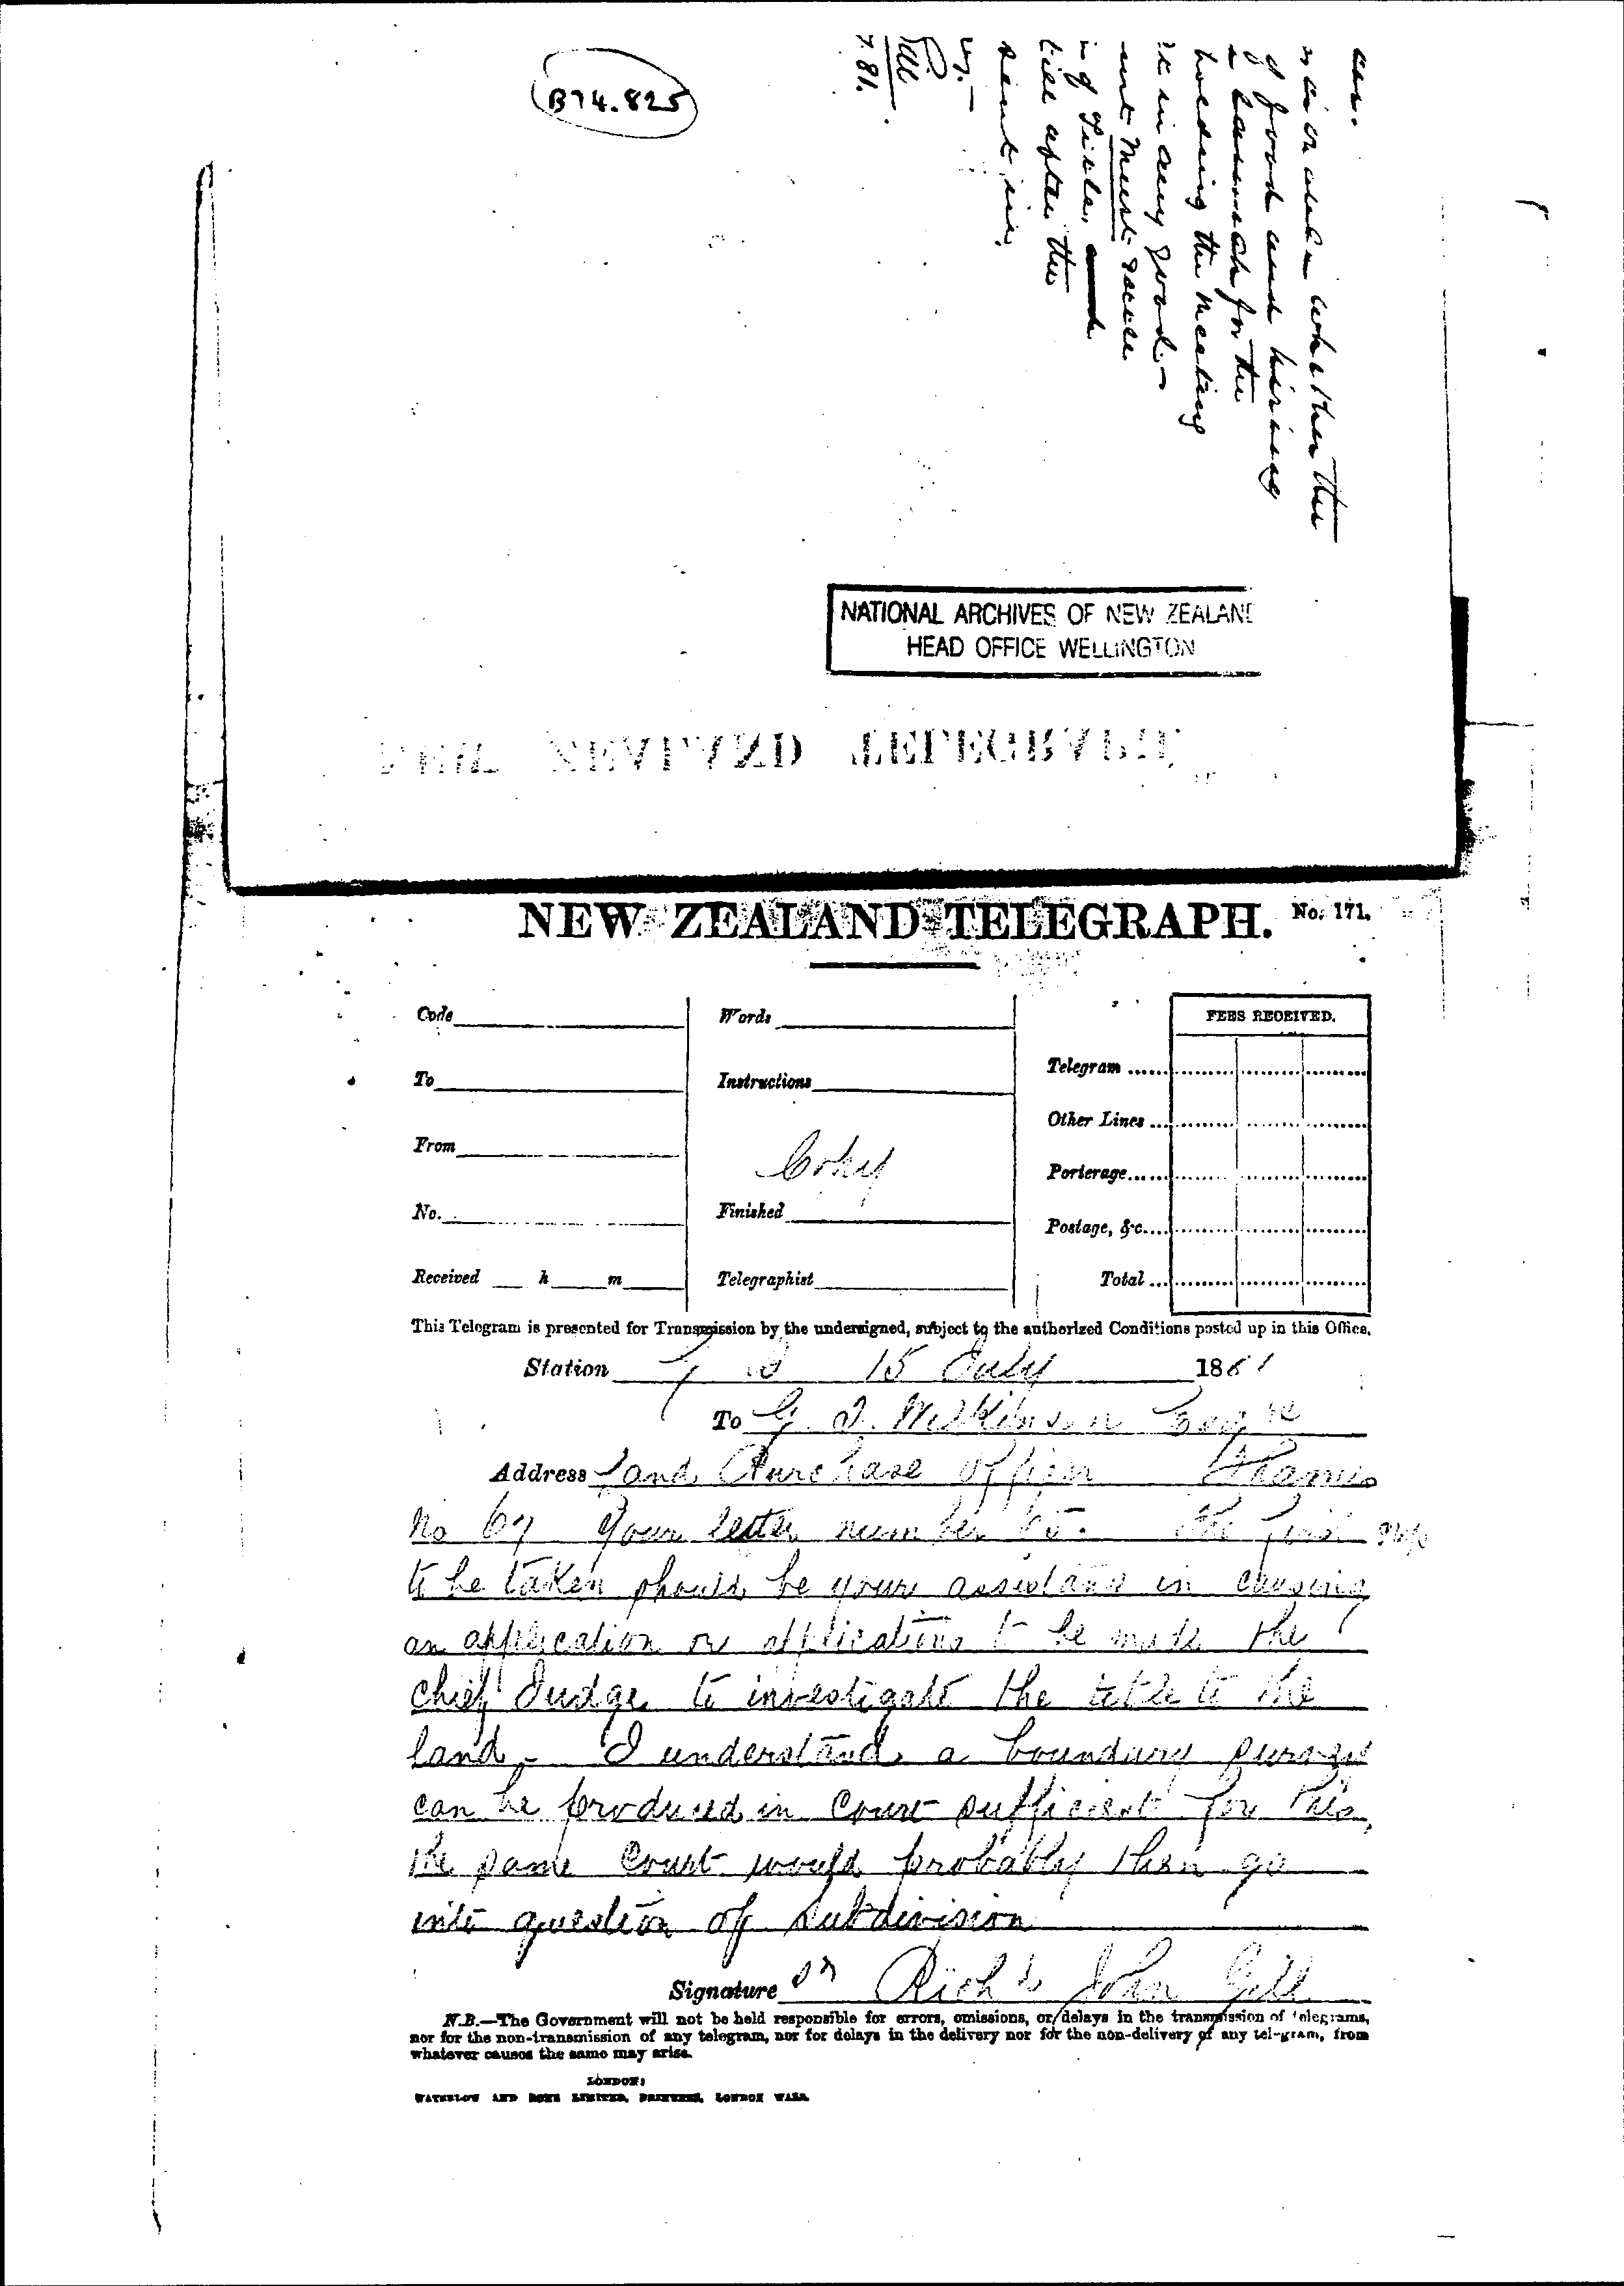 B74.825
is in on under whether the
of food and hiring
for the
holding the meeting
in any good. –
must Must cease
of Title, and
till after the
sent in.
Gill
7.81.
NATIONAL ARCHIVES OF NEW ZEALAND
HEAD OFFICE WELLINGTON
NEW ZEALAND TELEGRAPH. No. 171.
Code Words FEES RECEIVED.
To Instructions Telegram
Other Lines
From Copy Porterage
No. Finished Postage, &c.
Received h m Telegraphist Total
This Telegram is presented for Transmission by the undersigned, subject to the authorized Conditions posted up in this Office.
Station 15 July 1881
To G. T. Wilkinson Esqre
Address Land Purchase Officer Thames
No 67 Your letter number The first step
to be taken should be your assistance in causing
an application or applications to be made the
Chief Judge to investigate the title to the
land – I understand a boundary survey
can be produced in Court sufficient for this,
the same Court would probably then go
into question of subdivision
Signature Richd John Gill
N.B.—The Government will not be held responsible for errors, omissions, or delays in the transmission of telegrams,
nor for the non-transmission of any telegram, nor for delays in the delivery nor for the non-delivery of any telegram, from
whatever causes the same may arise.
LONDON:
WATERLOW AND SONS LIMITED, PRINTERS, LONDON WALL